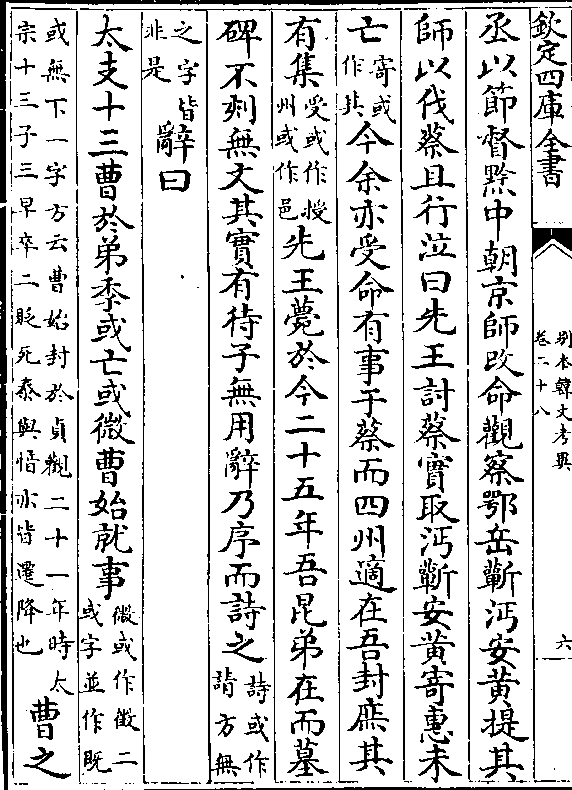 欽定四庫全書
別本韓文考異
卷二十八
六
丞以節督黔中朝京師改命觀察鄂岳蘄沔安黄提其
師以伐蔡且行泣曰先王討蔡實取沔蘄安黄寄惠未
亡寄或作其今余亦受命有事于蔡而四州適在吾封庶其
有集受或作授州或作邑先王薨於今二十五年吾昆弟在而墓
碑不刻無文其實有待子無用辭乃序而詩之詩或作請方無
之字皆非是辭曰
太支十三曹於弟季或亡或微曹始就事微或作徵二或字並作既
或無下一字方云曹始封於貞觀二十一年時太
宗十三子三早卒二貶死泰與愔亦皆遷降也曹之